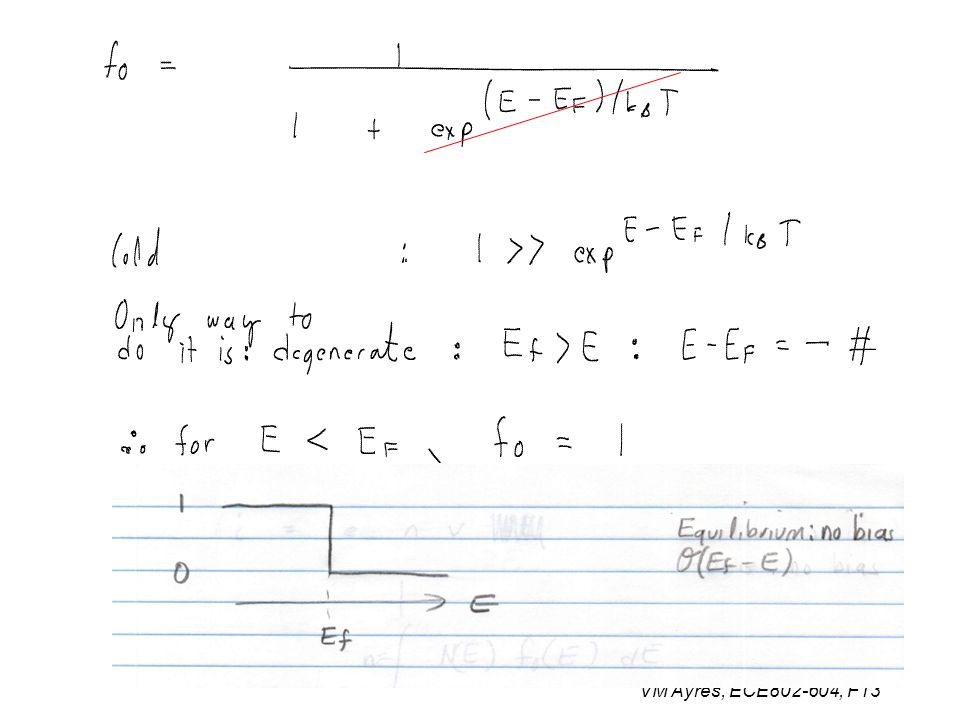 f0 = 1
1 + exp (E - EF)/kB T
Cold : 1 >> exp E - EF / kB T
Only way to
do it is: degenerate : Ef > E : E - EF = - #
∴ for E < EF, f0 = 1
1
Equilibrium: no bias
0
(EF - E)
E
Ef
n= N(E) f0(E) dE
VM Ayres, ECE802-604, F13